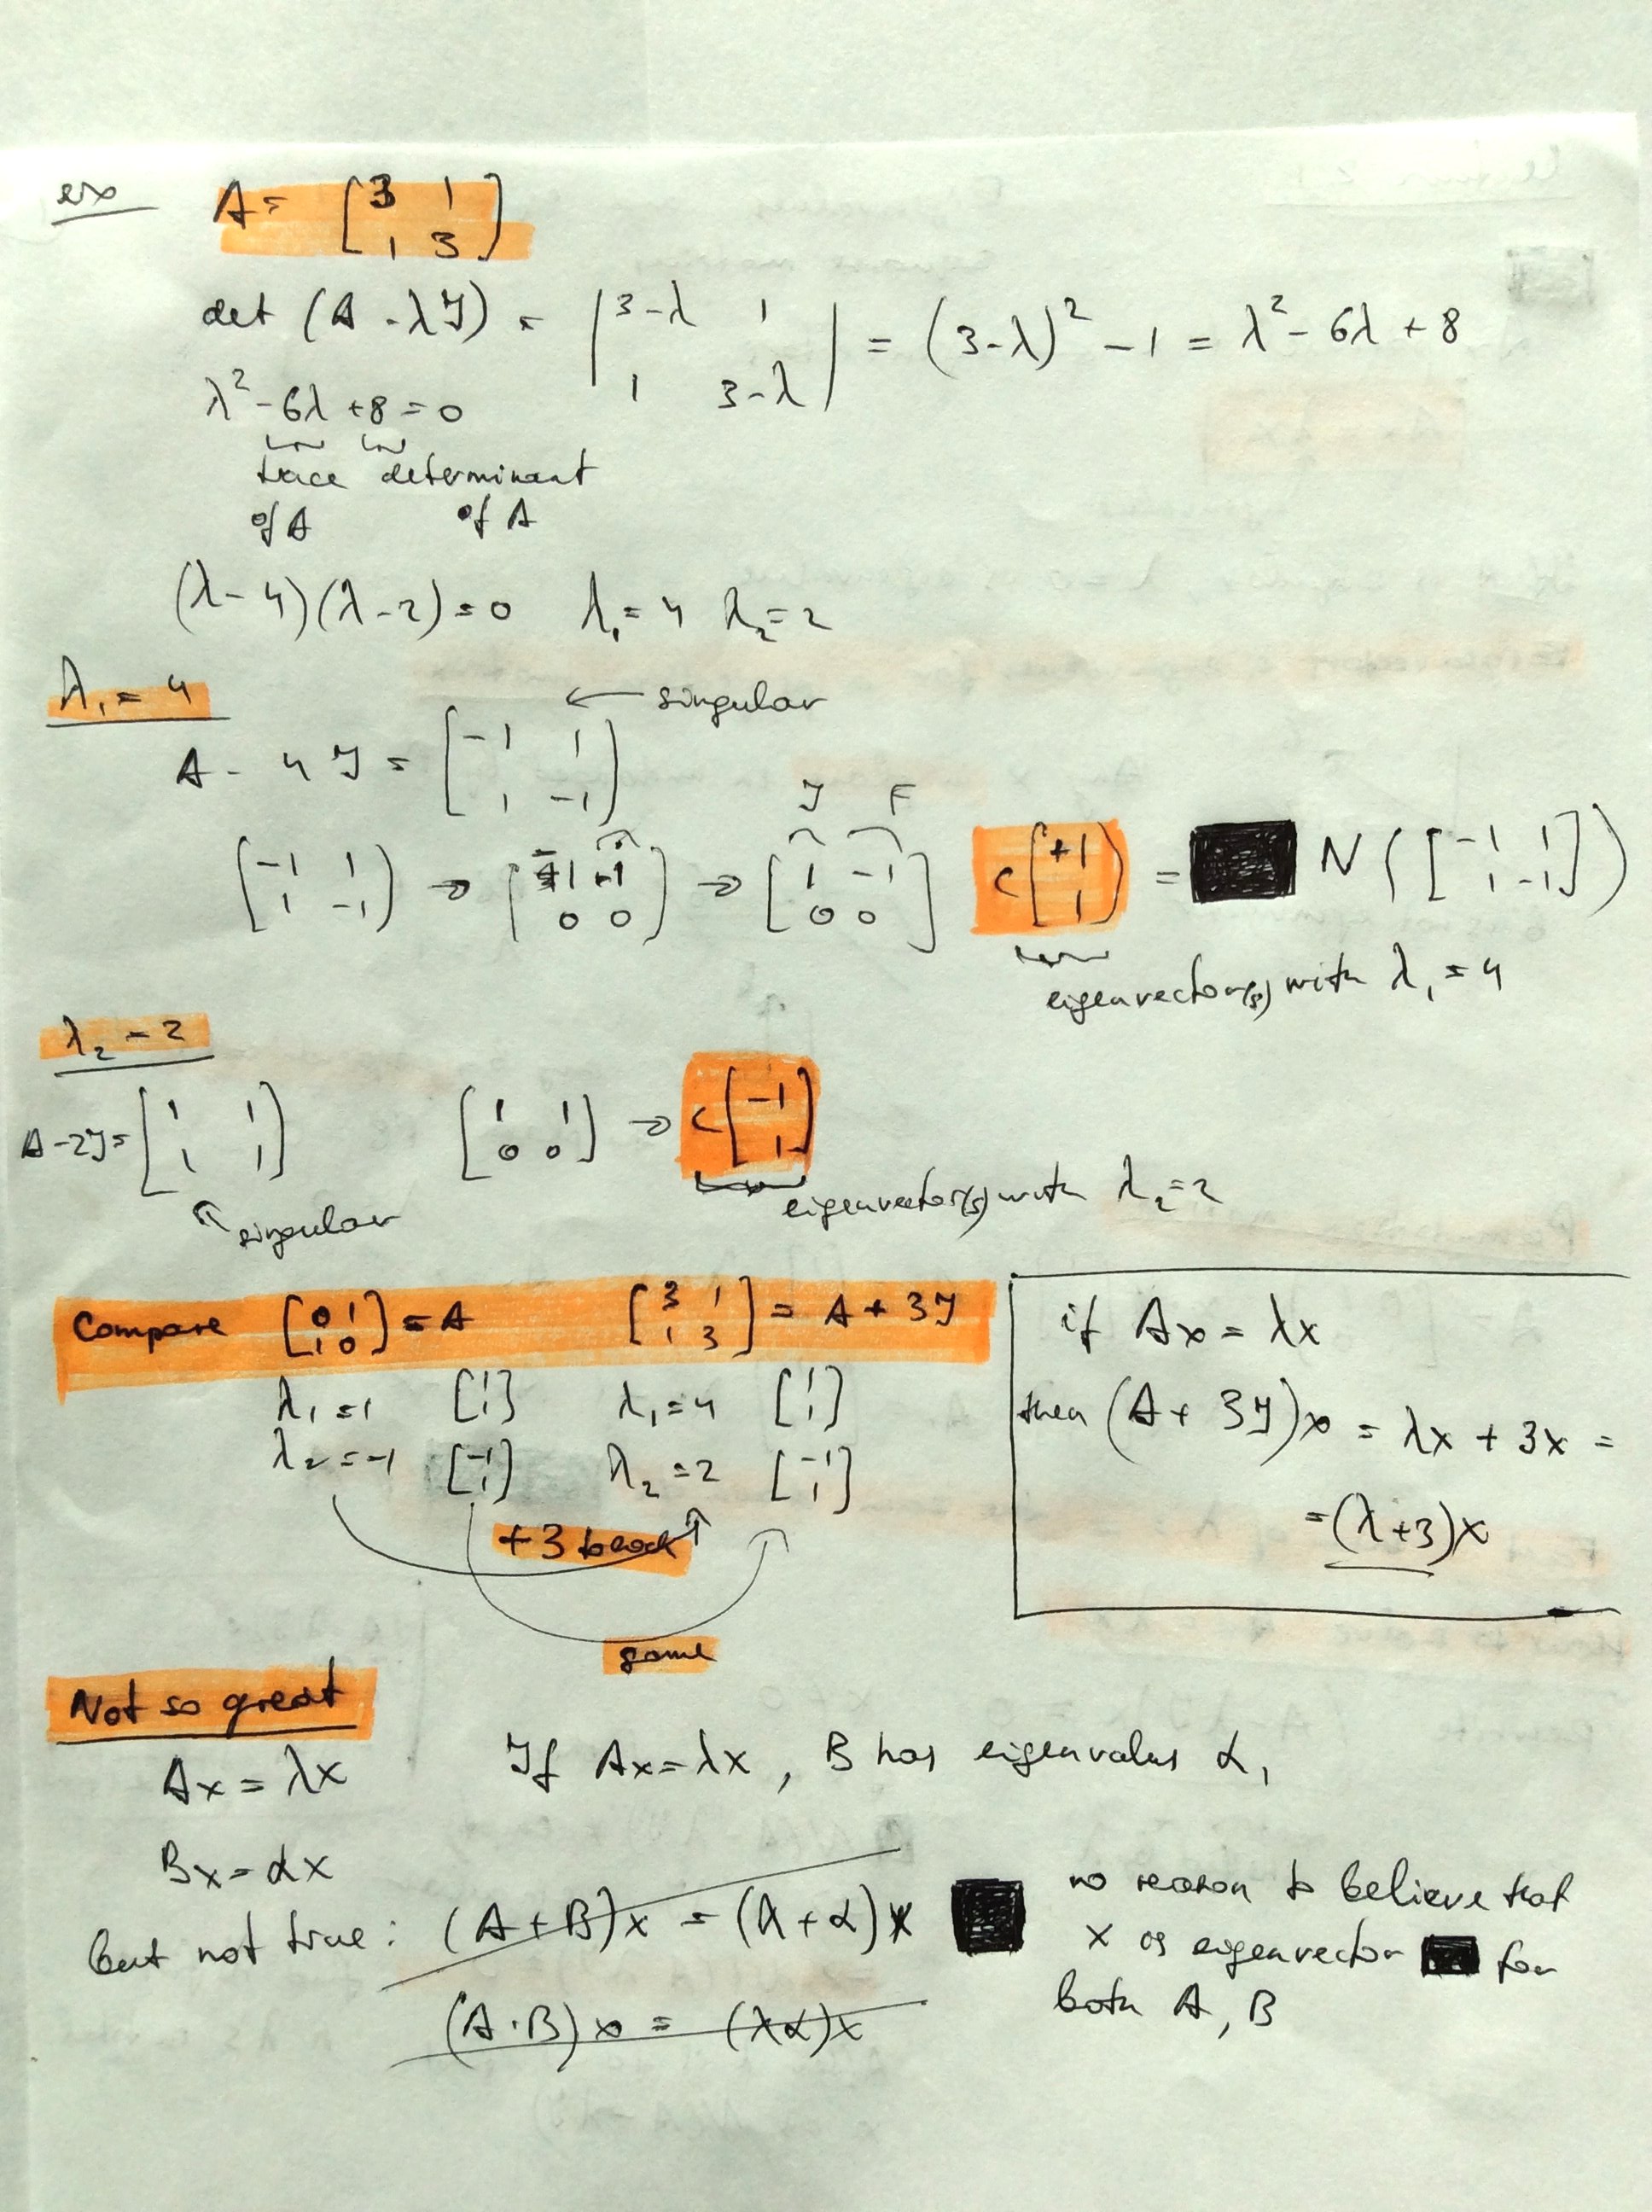 ex A = [3 1; 1 3]
det (A - λI) = |3-λ 1; 1 3-λ| = (3-λ)² - 1 = λ² - 6λ + 8
λ² - 6λ + 8 = 0
trace determinant
of A of A
(λ-4)(λ-2) = 0 λ₁ = 4 λ₂ = 2
λ₁ = 4
← singular
A - 4I = [-1 1; 1 -1]
I F
[-1 1; 1 -1] → [-1 1; 0 0] → [1 -1; 0 0] c[+1; 1] = N([-1 1; 1 -1])
eigenvector(s) with λ₁ = 4
λ₂ = 2
A - 2I = [1 1; 1 1] [1 1; 0 0] → c[-1; 1]
eigenvector(s) with λ₂ = 2
↑ singular
Compare [0 1; 1 0] = A [3 1; 1 3] = A + 3I
λ₁ = 1 [1; 1] λ₁ = 4 [1; 1]
λ₂ = -1 [-1; 1] λ₂ = 2 [-1; 1]
+3
same
if Ax = λx
then (A + 3I)x = λx + 3x =
= (λ+3)x
Not so great
Ax = λx If Ax = λx, B has eigenvalues α,
Bx = αx
but not true: (A+B)x = (λ+α)x
(A·B)x = (λα)x
no reason to believe that
x is eigenvector for
both A, B